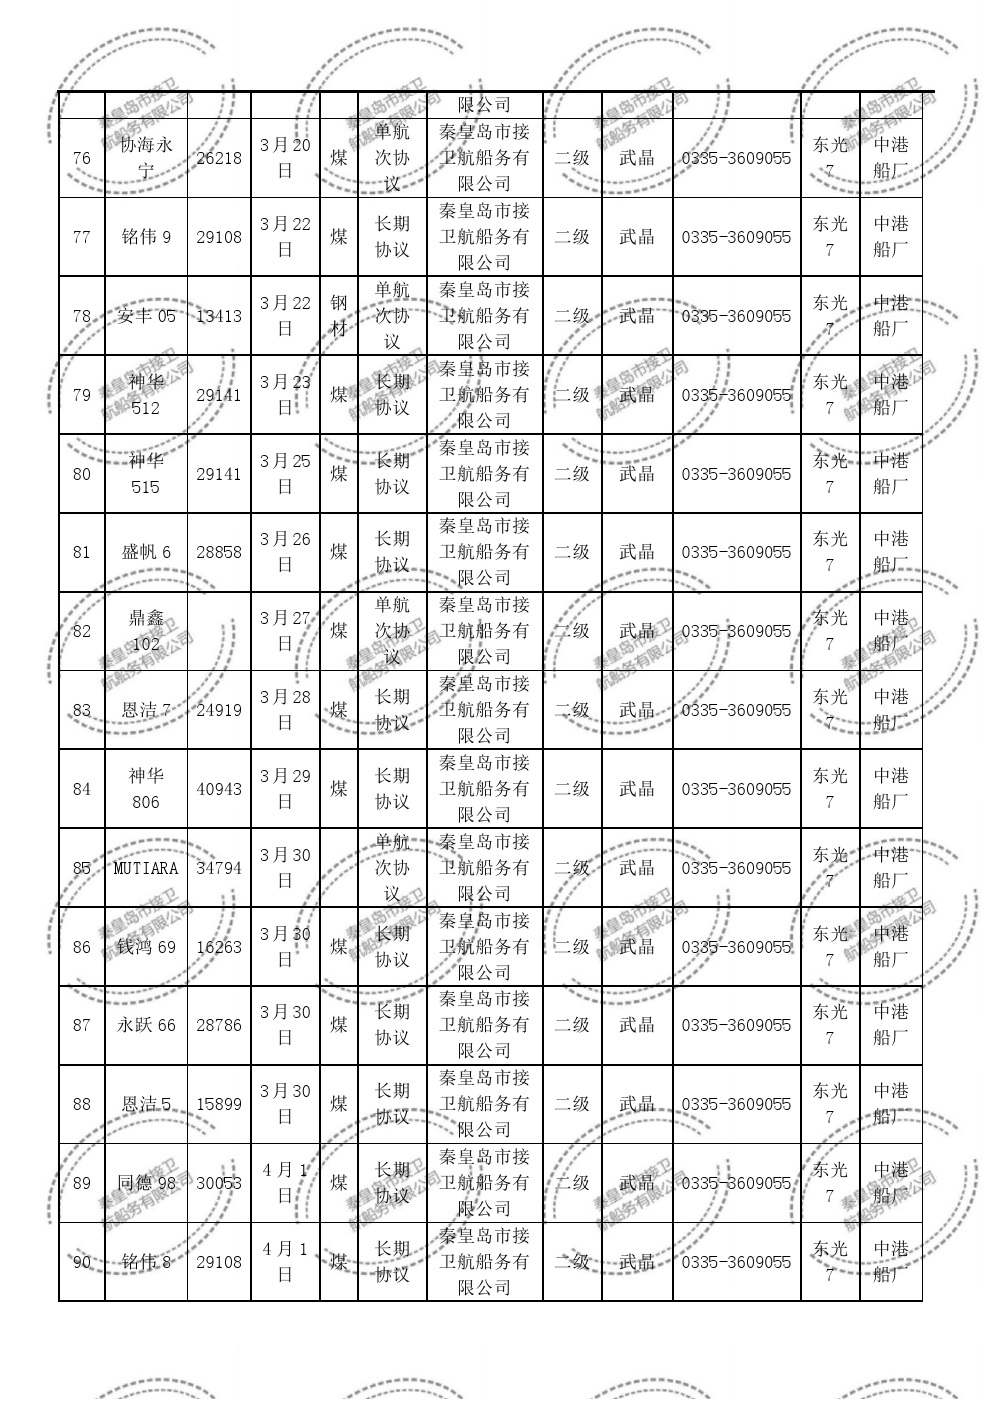 限公司
76 协海永宁 26218 3月20日 煤 单航次协议 秦皇岛市接卫航船务有限公司 二级 武晶 0335-3609055 东光7 中港船厂
77 铭伟9 29108 3月22日 煤 长期协议 秦皇岛市接卫航船务有限公司 二级 武晶 0335-3609055 东光7 中港船厂
78 安丰05 13413 3月22日 钢材 单航次协议 秦皇岛市接卫航船务有限公司 二级 武晶 0335-3609055 东光7 中港船厂
79 神华512 29141 3月23日 煤 长期协议 秦皇岛市接卫航船务有限公司 二级 武晶 0335-3609055 东光7 中港船厂
80 神华515 29141 3月25日 煤 长期协议 秦皇岛市接卫航船务有限公司 二级 武晶 0335-3609055 东光7 中港船厂
81 盛帆6 28858 3月26日 煤 长期协议 秦皇岛市接卫航船务有限公司 二级 武晶 0335-3609055 东光7 中港船厂
82 鼎鑫102 3月27日 煤 单航次协议 秦皇岛市接卫航船务有限公司 二级 武晶 0335-3609055 东光7 中港船厂
83 恩洁7 24919 3月28日 煤 长期协议 秦皇岛市接卫航船务有限公司 二级 武晶 0335-3609055 东光7 中港船厂
84 神华806 40943 3月29日 煤 长期协议 秦皇岛市接卫航船务有限公司 二级 武晶 0335-3609055 东光7 中港船厂
85 MUTIARA 34794 3月30日 单航次协议 秦皇岛市接卫航船务有限公司 二级 武晶 0335-3609055 东光7 中港船厂
86 钱鸿69 16263 3月30日 煤 长期协议 秦皇岛市接卫航船务有限公司 二级 武晶 0335-3609055 东光7 中港船厂
87 永跃66 28786 3月30日 煤 长期协议 秦皇岛市接卫航船务有限公司 二级 武晶 0335-3609055 东光7 中港船厂
88 恩洁5 15899 3月30日 煤 长期协议 秦皇岛市接卫航船务有限公司 二级 武晶 0335-3609055 东光7 中港船厂
89 同德98 30053 4月1日 煤 长期协议 秦皇岛市接卫航船务有限公司 二级 武晶 0335-3609055 东光7 中港船厂
90 铭伟8 29108 4月1日 煤 长期协议 秦皇岛市接卫航船务有限公司 二级 武晶 0335-3609055 东光7 中港船厂